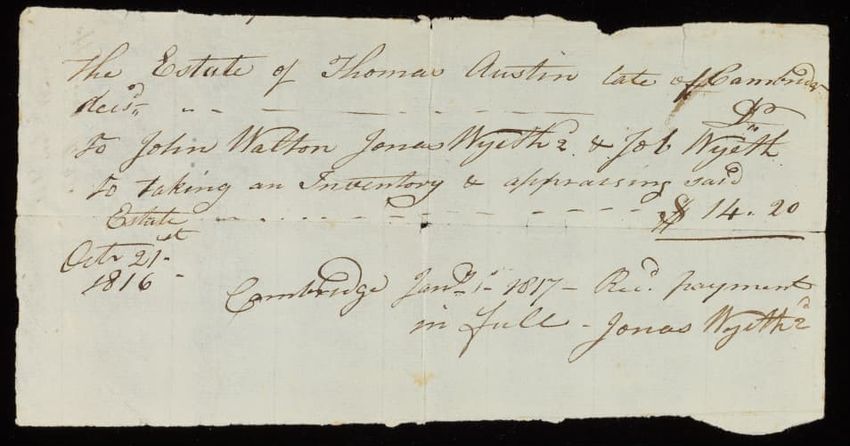 The Estate of Thomas Austin late of Cambridge
decsd
Dr
To John Walton Jonas Wyeth 2d & Job Wyeth
To taking an Inventory & appraising said
Estate - - - - - - - - - $ 14.20
Octr 21st
1816 -
Cambridge Jany 1st 1817 - Recd payment
in full - Jonas Wyeth 2d